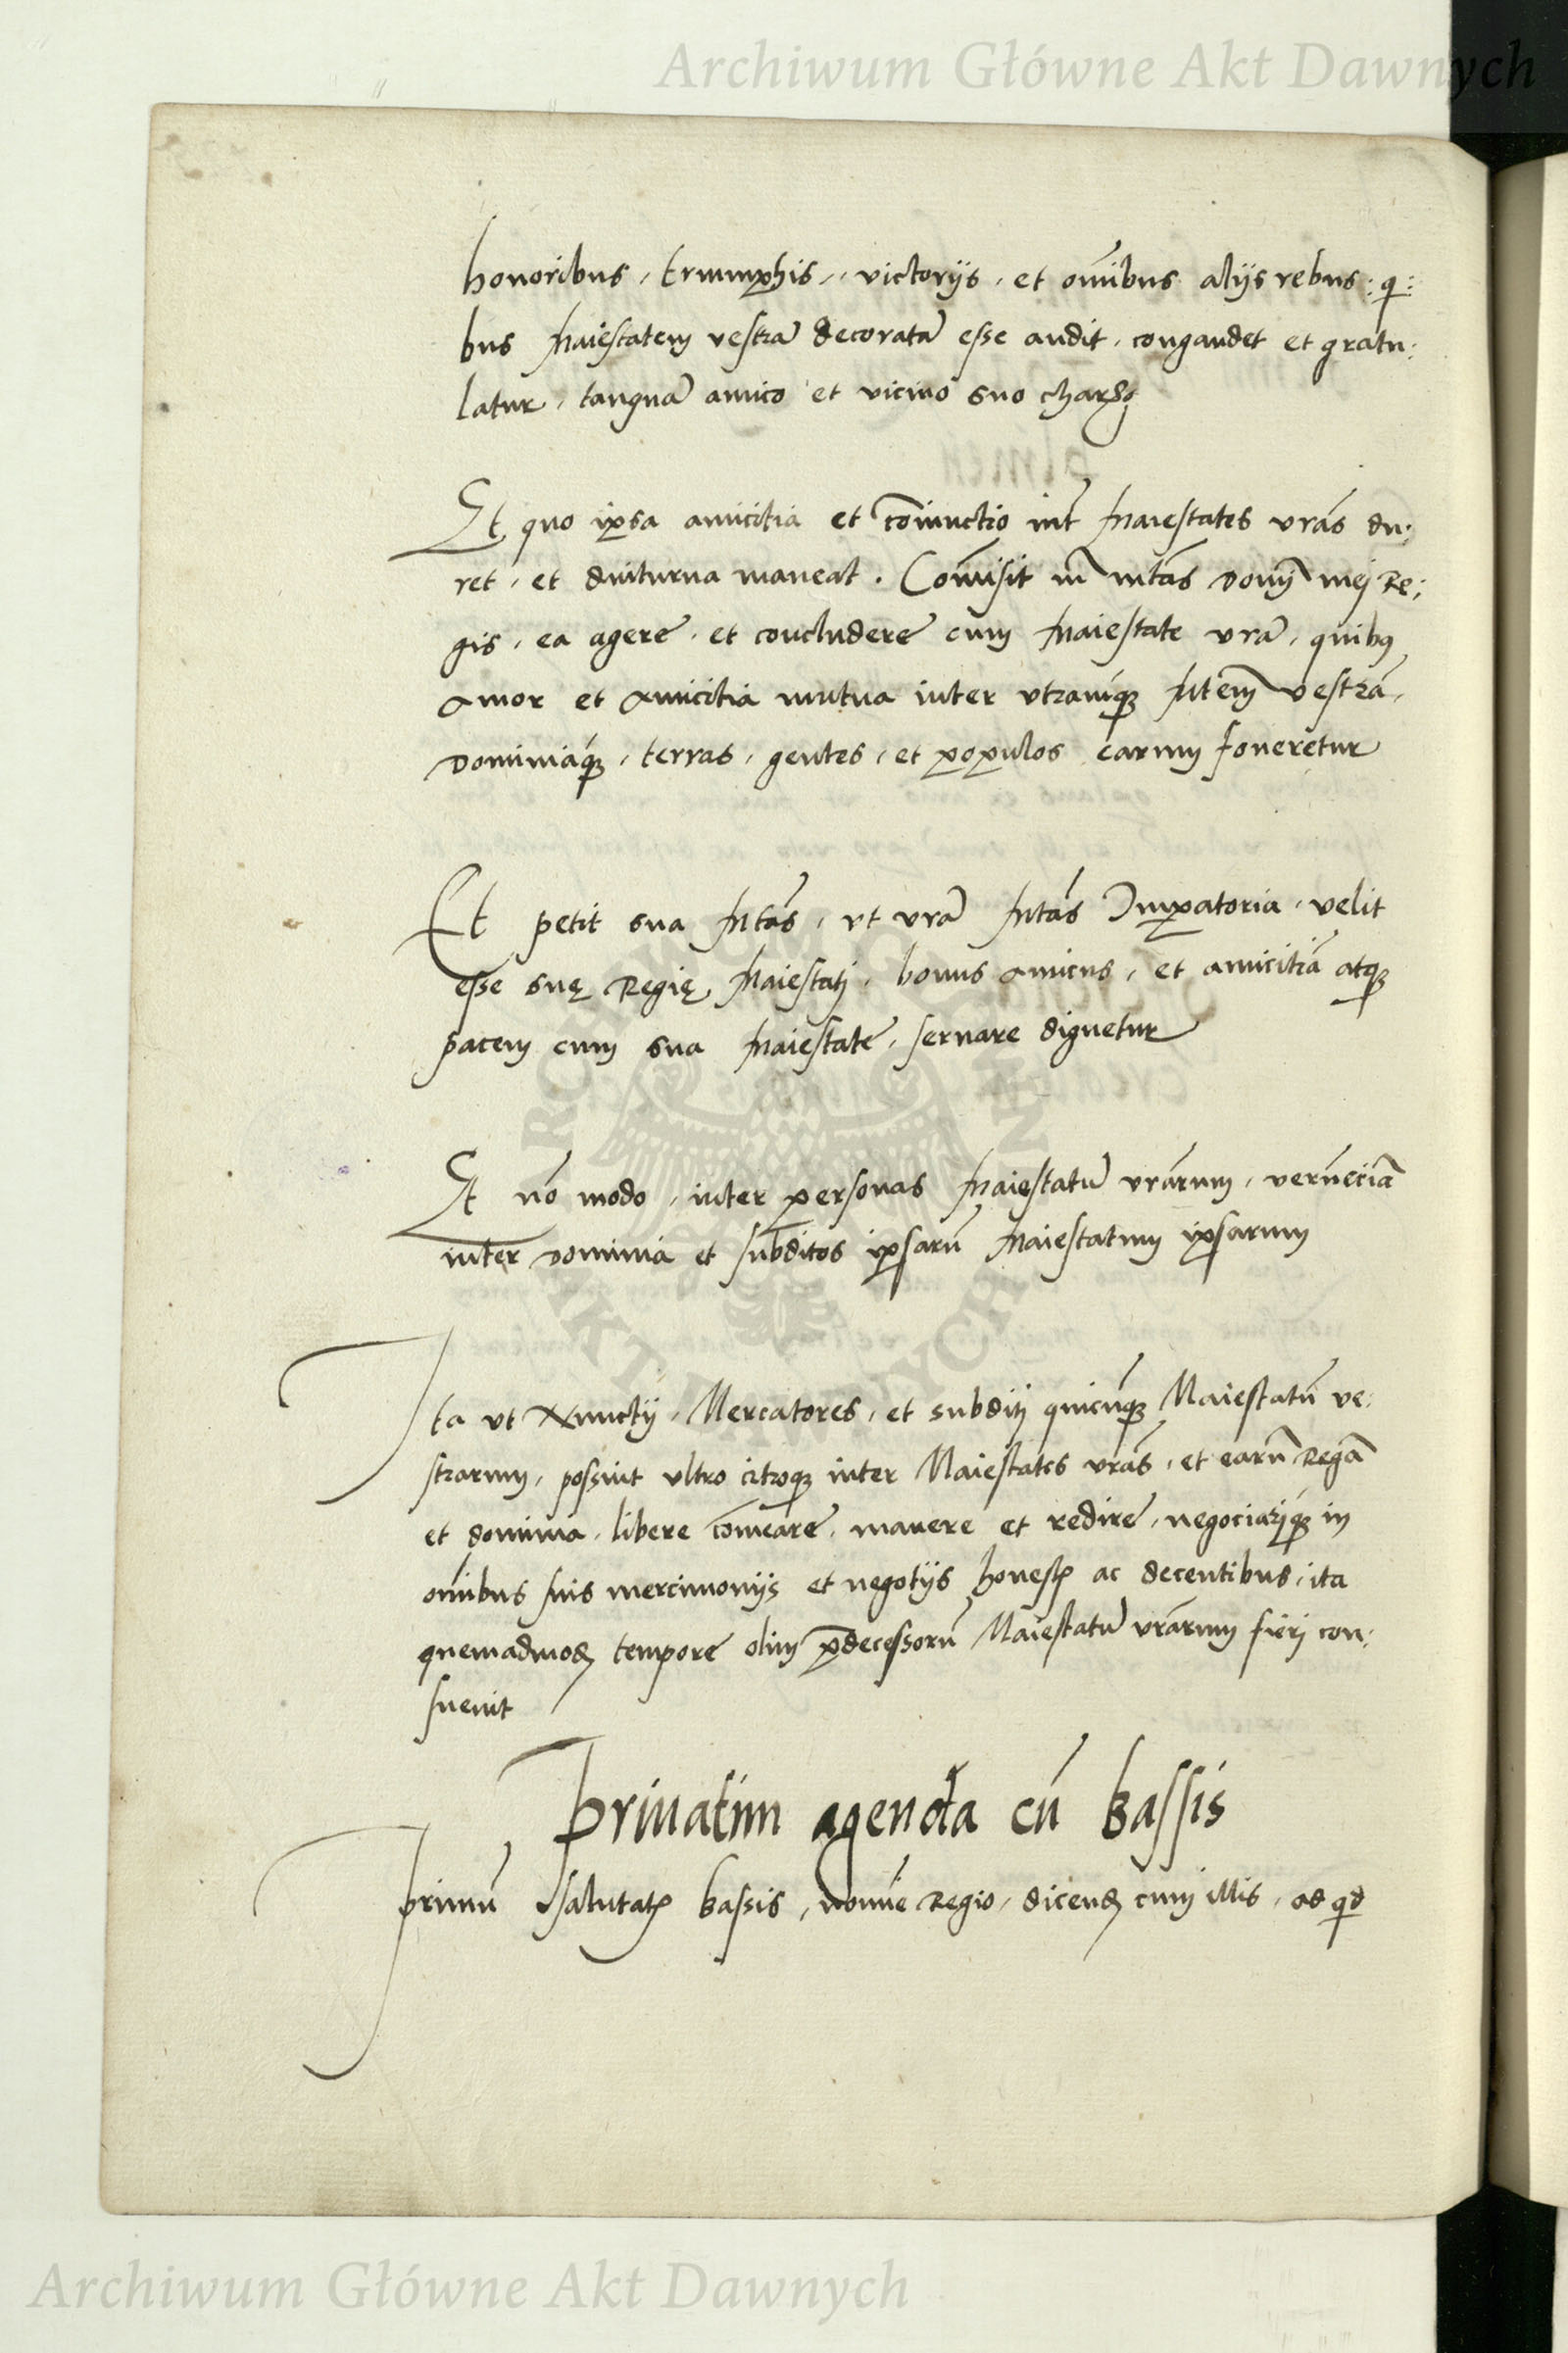 Archiwum Główne Akt Dawnych
honoribus, triumphis, victorijs, et om̃ibus alijs rebus: q̃:
bus Maiestatem vestrã decoratã esse audit, congaudet et gratu:
latur, tanquã amico et vicino suo char͠o
Et quo ipsa amicitia et cõiunctio int̃ Maiestates vr̃as du:
ret, et diuturna maneat. Com̃isit m̃ Mtãs Domĩ mei Re:
gis, ea agere, et concludere cum Maiestate vrã, quibus
amor et amicitia mutua inter vtramq; Mtem̃ vestrã,
Dominiaq;, terras, gentes, et populos earum foueretur
Et petit sua Mtãs, vt vrã Mtãs Imp̱atoria, velit
esse suę Regię Maiestati, bonus amicus, et amicitiã atq;
pacem cum sua Maiestate, seruare dignetur
Et nõ modo, inter personas Maiestatũ vrãrum, verũeciã
inter Dominia et subditos ipsarũ Maiestatum ipsarum
Ita vt Nunctij, Mercatores, et subditi quicũq; Maiestatũ ve:
strarum, possint vltro citroq; inter Maiestates vrãs, et earũ Regñã
et dominia, libere com̃eare, manere et redire, negociariq; in
om̃ibus suis mercimonijs et negotijs honest̃ ac decentibus, ita
quemadmod̃ tempore olim p̃decessorũ Maiestatũ vrãrum fieri con:
sueuit
Priuatim agenda cũ Bassis
Primũ salutat̃ Bassis, nom̃e Regio, dicend̃ cum illis, ad qd̃
ARCHIWUM GŁÓWNE AKT DAWNYCH
Archiwum Główne Akt Dawnych